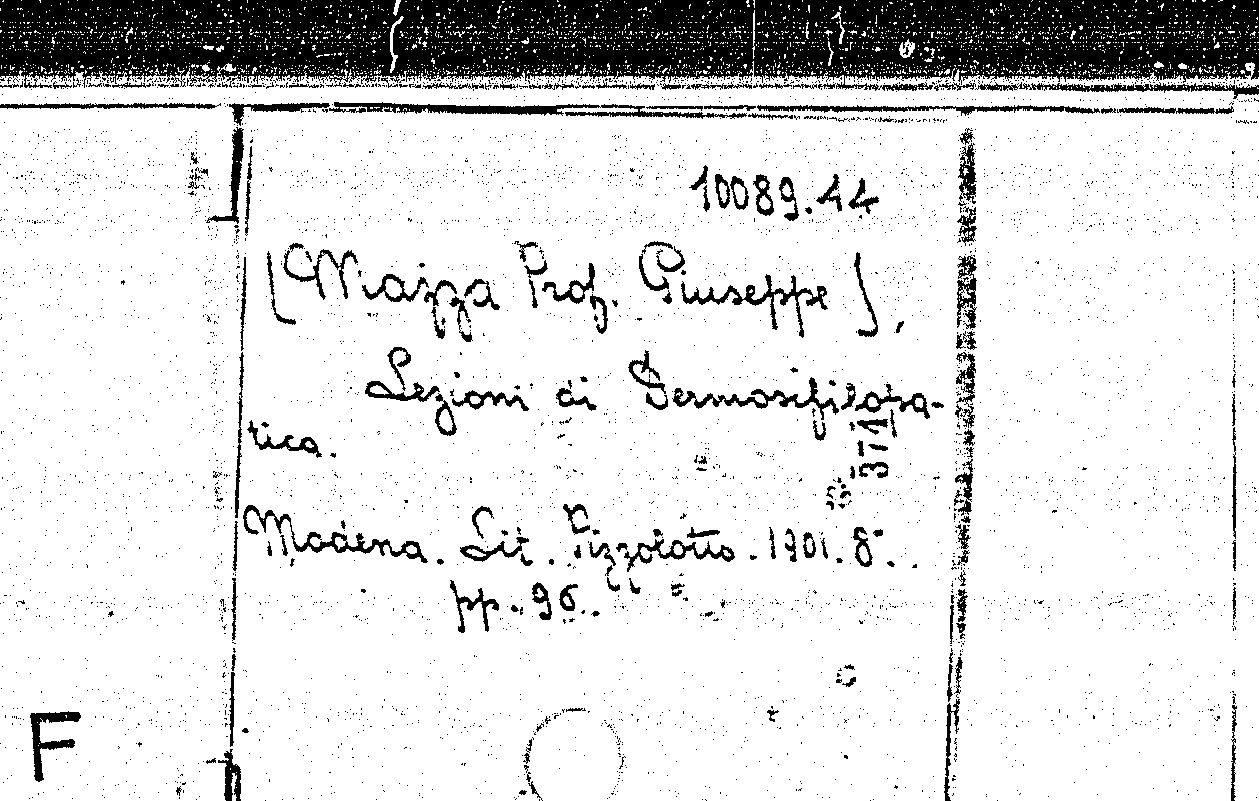 10089.44
[Mazza Prof. Giuseppe].
Lezioni di Dermosifilopa-
tica.
371
Modena. Lit. Pizzolotto. 1901. 8°.
pp. 96.
F